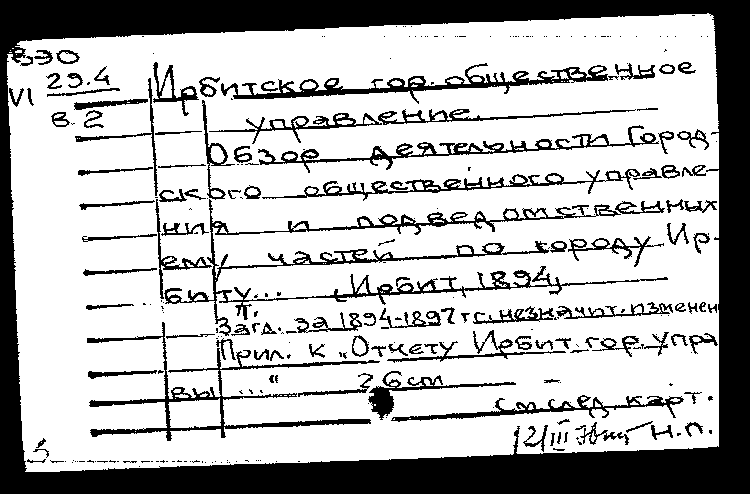 ВЭО
VI 29.4
В.2
Ирбитское гор. общественное
управление.
Обзор деятельности Город-
ского общественного управле-
ния и подведомственных
ему частей по городу Ир-
биту... [Ирбит, 1894]
т.
Загл. за 1894-1897 гг. незначит. изменен
Прил. к „Отчету Ирбит. гор. упра
вы ..." 26 см –
См след. карт.
12/III Н.П.